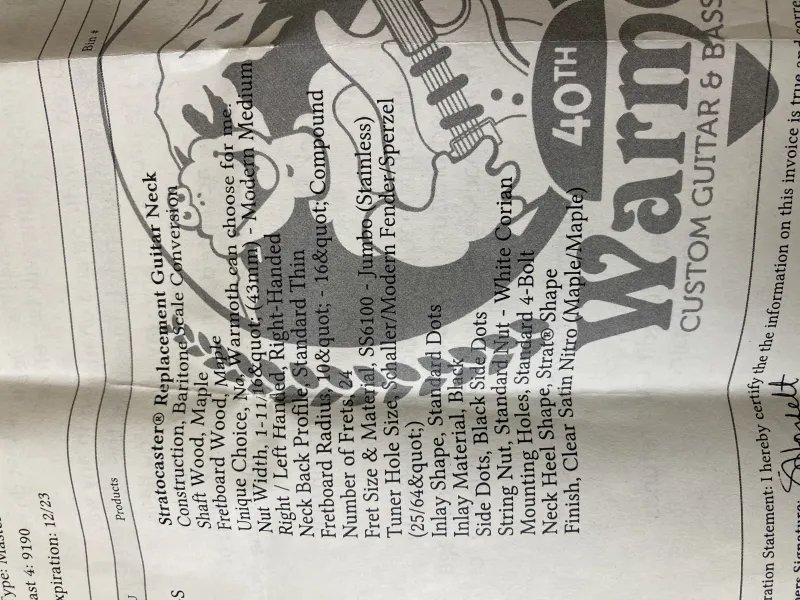 Type:
ast 4: 9190
xpiration: 12/23
Products
Bin #
S
Stratocaster® Replacement Guitar Neck
Construction, Baritone Scale Conversion
Shaft Wood, Maple
Fretboard Wood, Maple
Unique Choice, No, Warmoth can choose for me.
Nut Width, 1-11/16&quot; (43mm) - Modern Medium
Right / Left Handed, Right-Handed
Neck Back Profile, Standard Thin
Fretboard Radius, 10&quot; - 16&quot; Compound
Number of Frets, 24
Fret Size & Material, SS6100 - Jumbo (Stainless)
Tuner Hole Size, Schaller/Modern Fender/Sperzel
(25/64&quot;)
Inlay Shape, Standard Dots
Inlay Material, Black
Side Dots, Black Side Dots
String Nut, Standard Nut - White Corian
Mounting Holes, Standard 4-Bolt
Neck Heel Shape, Strat® Shape
Finish, Clear Satin Nitro (Maple/Maple)
40TH
Warmo
CUSTOM GUITAR & BASS
ration Statement: I hereby certify the the information on this invoice is true and corre
ers Signature